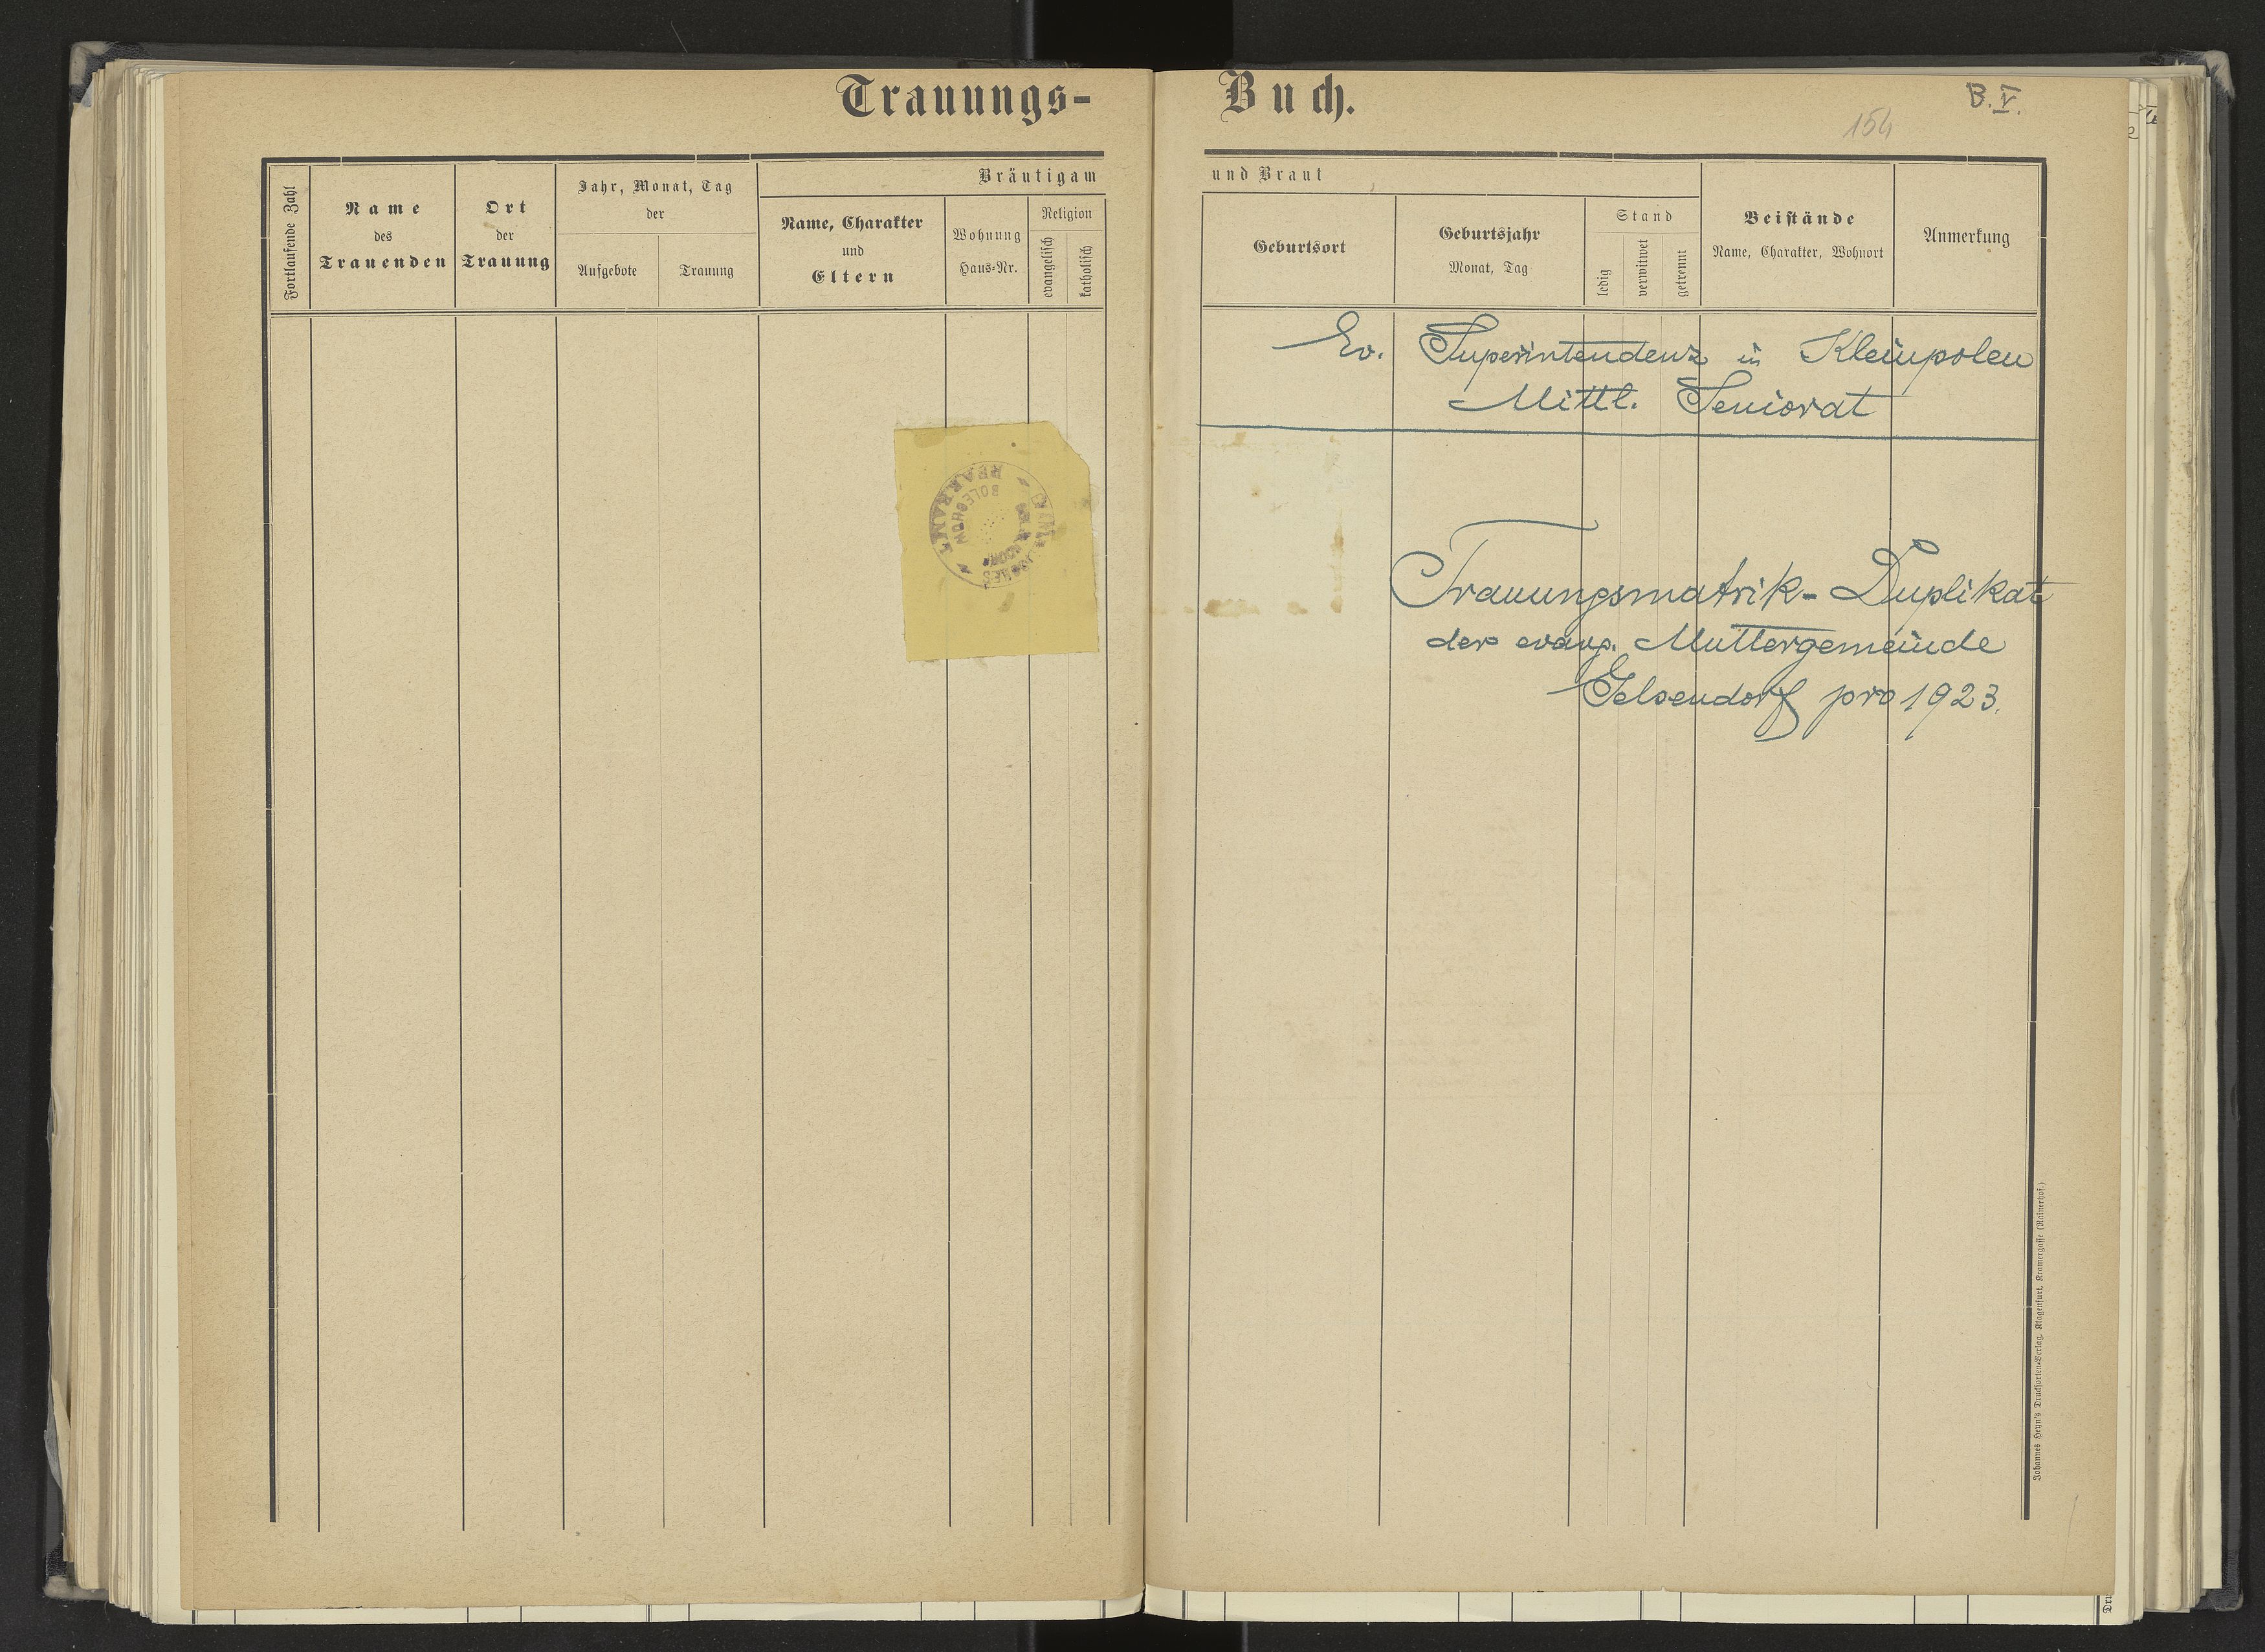 Trauungs-
Buch.
B. V.
154
Fortlaufende Zahl
Name
des
Trauenden
Ort
der
Trauung
Jahr, Monat, Tag
der
Aufgebote
Trauung
Bräutigam
Name, Charakter
und
Eltern
Wohnung
Haus-Nr.
Religion
evangelisch
katholisch
und Braut
Geburtsort
Geburtsjahr
Monat, Tag
Stand
ledig
verwitwet
getrennt
Beistände
Name, Charakter, Wohnort
Anmerkung
Ev. Superintendenz in Kleinpolen
Mittl. Seniorat
PFARRAMT
BOLECHOW
Trauungsmatrik-Duplikat
der evang. Muttergemeinde
Gelsendorf pro 1923.
Johannes Heyn's Drucksorten-Verlag, Klagenfurt, Kramergasse (Rainerhof.)